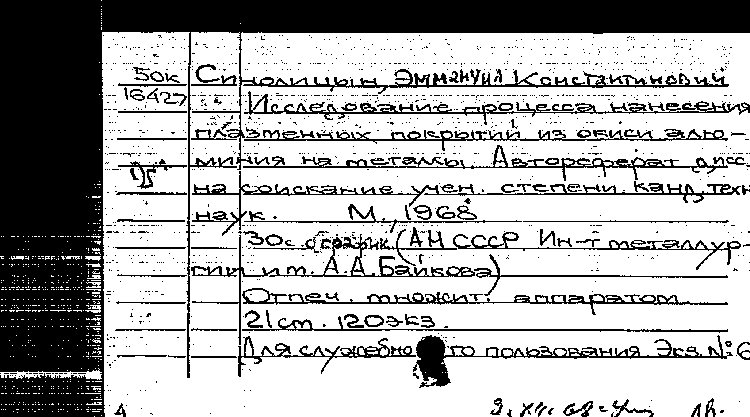 50к Синолицын, Эммануил Константинович
16427 Исследование процесса нанесения
плазменных покрытий из окиси алю-
миния на металлы. Автореферат дисс.
на соискание учен. степени канд. техн.
наук. М., 1968.
30с. с график. (АН СССР. Ин-т металлур-
гии им. А.А. Байкова)
Отпеч. множит. аппаратом.
21 см. 120 экз.
Для служебного пользования. Экз. № 6